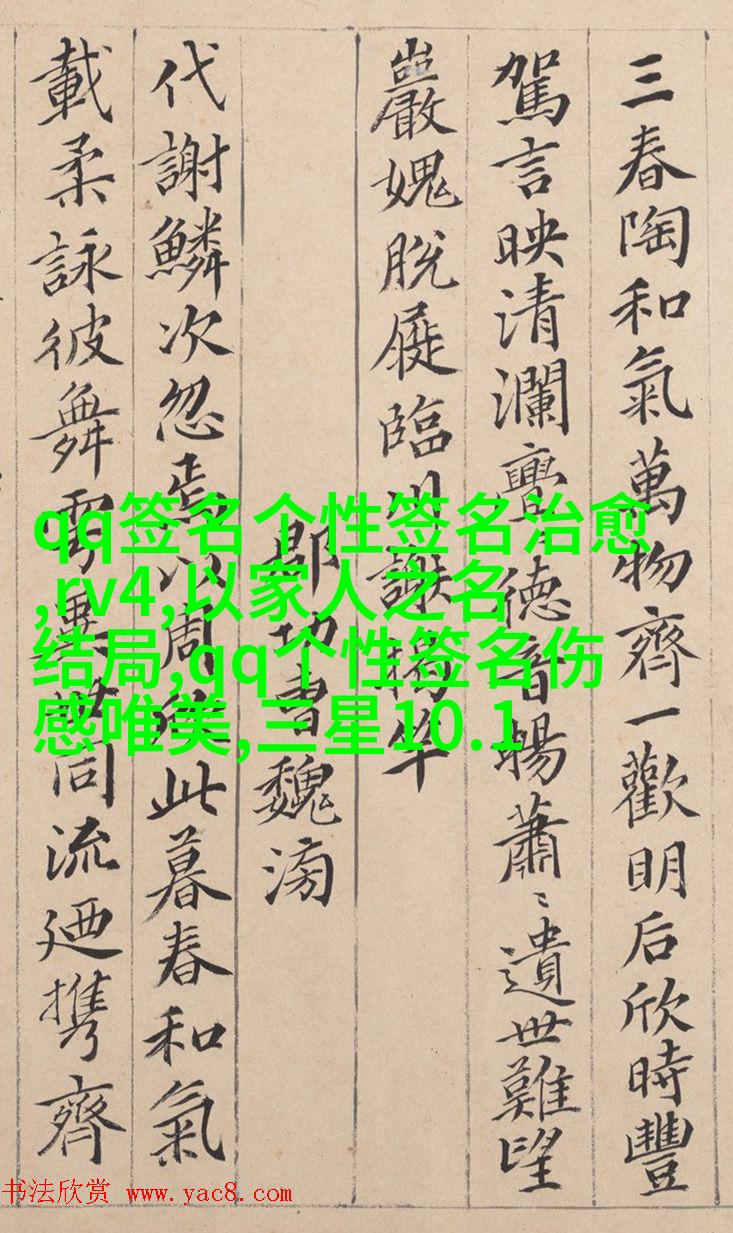 三春陶和氣萬物齊一歡明后欣時豐
駕言映清瀾亹〻德音暢蕭〻遺世難望
巖愧脫屣臨川謝揭竿
郡功曹魏滂
代謝鱗次忽焉以周欣此暮春和氣
載柔詠彼舞雩異世同流迺携齊
qq签名个性签名治愈
,rv4,以家人之名
结局,qq个性签名伤
感唯美,三星10.1
书法欣赏 www.yac8.com